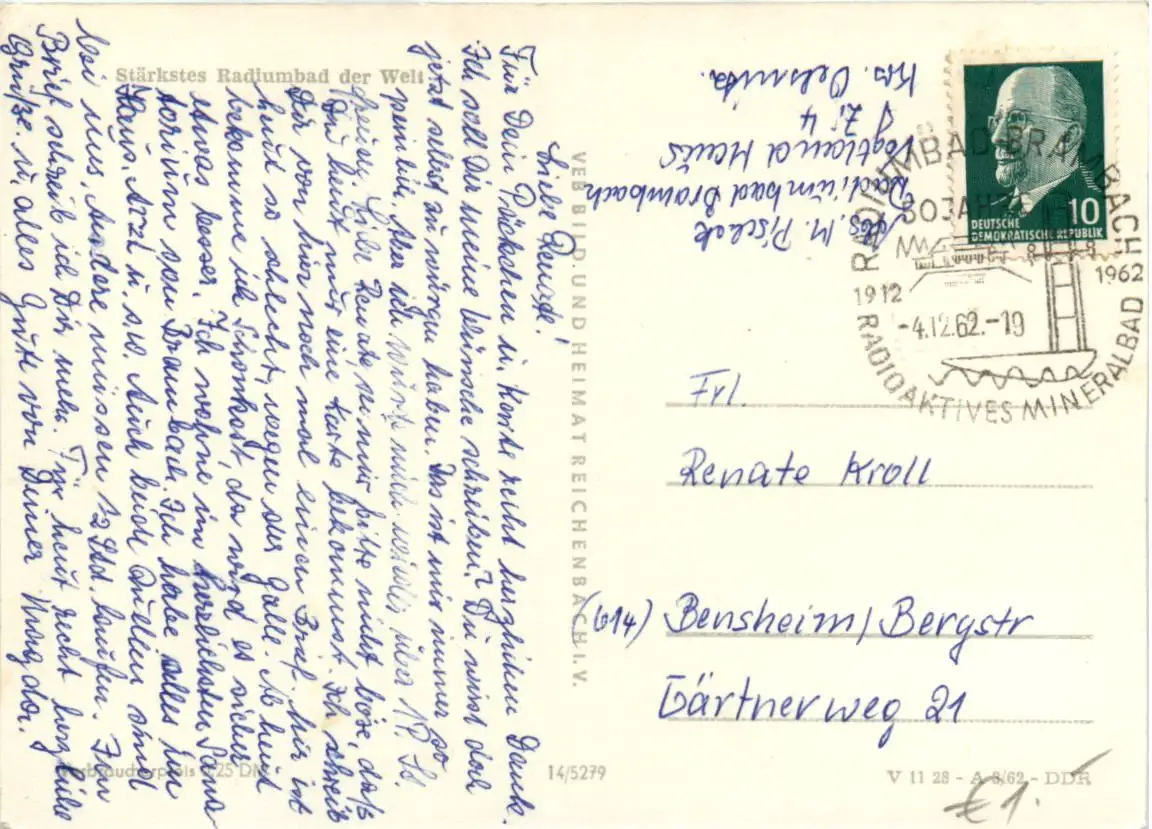 Stärkstes Radiumbad der Welt
Liebe Renate!
Für Dein Päckchen u. Karte recht herzlichen Dank.
Ich soll Dir meine Wünsche schreiben? Du wirst doch
jetzt selbst zu würgen haben. Das ist mir immer so
peinlich. Aber ich würd mich über 1 P.
freuen. Liebe Renate, sei mir bitte nicht böse, daß
Du heut nur eine Karte bekommst. Ich schreib
Dir von hier noch mal einen Brief. Mir ist
heut so schlecht, wegen der Galle. Ab heut
bekomme ich Schonkost, da wird es sicher
etwas besser. Ich wohne im herrlichsten Sana
torium von Brambach. Ich habe alles im
Haus, Arzt u.s.w. Auch beide Quellen sind
bei uns. Andere müssen 1/2 Std. laufen. Im
Brief schreib ich Dir mehr. Für heut recht herzliche
Grüße u. alles Gute von Deiner Margot.
VEB BILD UND HEIMAT REICHENBACH I. V.
Abs. M. Pischek
Radiumbad Brambach
Vogtland Haus
Z. 4
Krs. Oelsnitz
DEUTSCHE
DEMOKRATISCHE REPUBLIK
10
RADIUMBAD BRAMBACH
50 JAHRE
1912
1962
-4.12.62.-19
RADIOAKTIVES MINERALBAD
Frl.
Renate Kroll
(614) Bensheim/Bergstr
Gärtnerweg 21
Verbraucherpreis 0,25 DM
14/5279
V 11 28 - A 8/62 - DDR
€ 1.